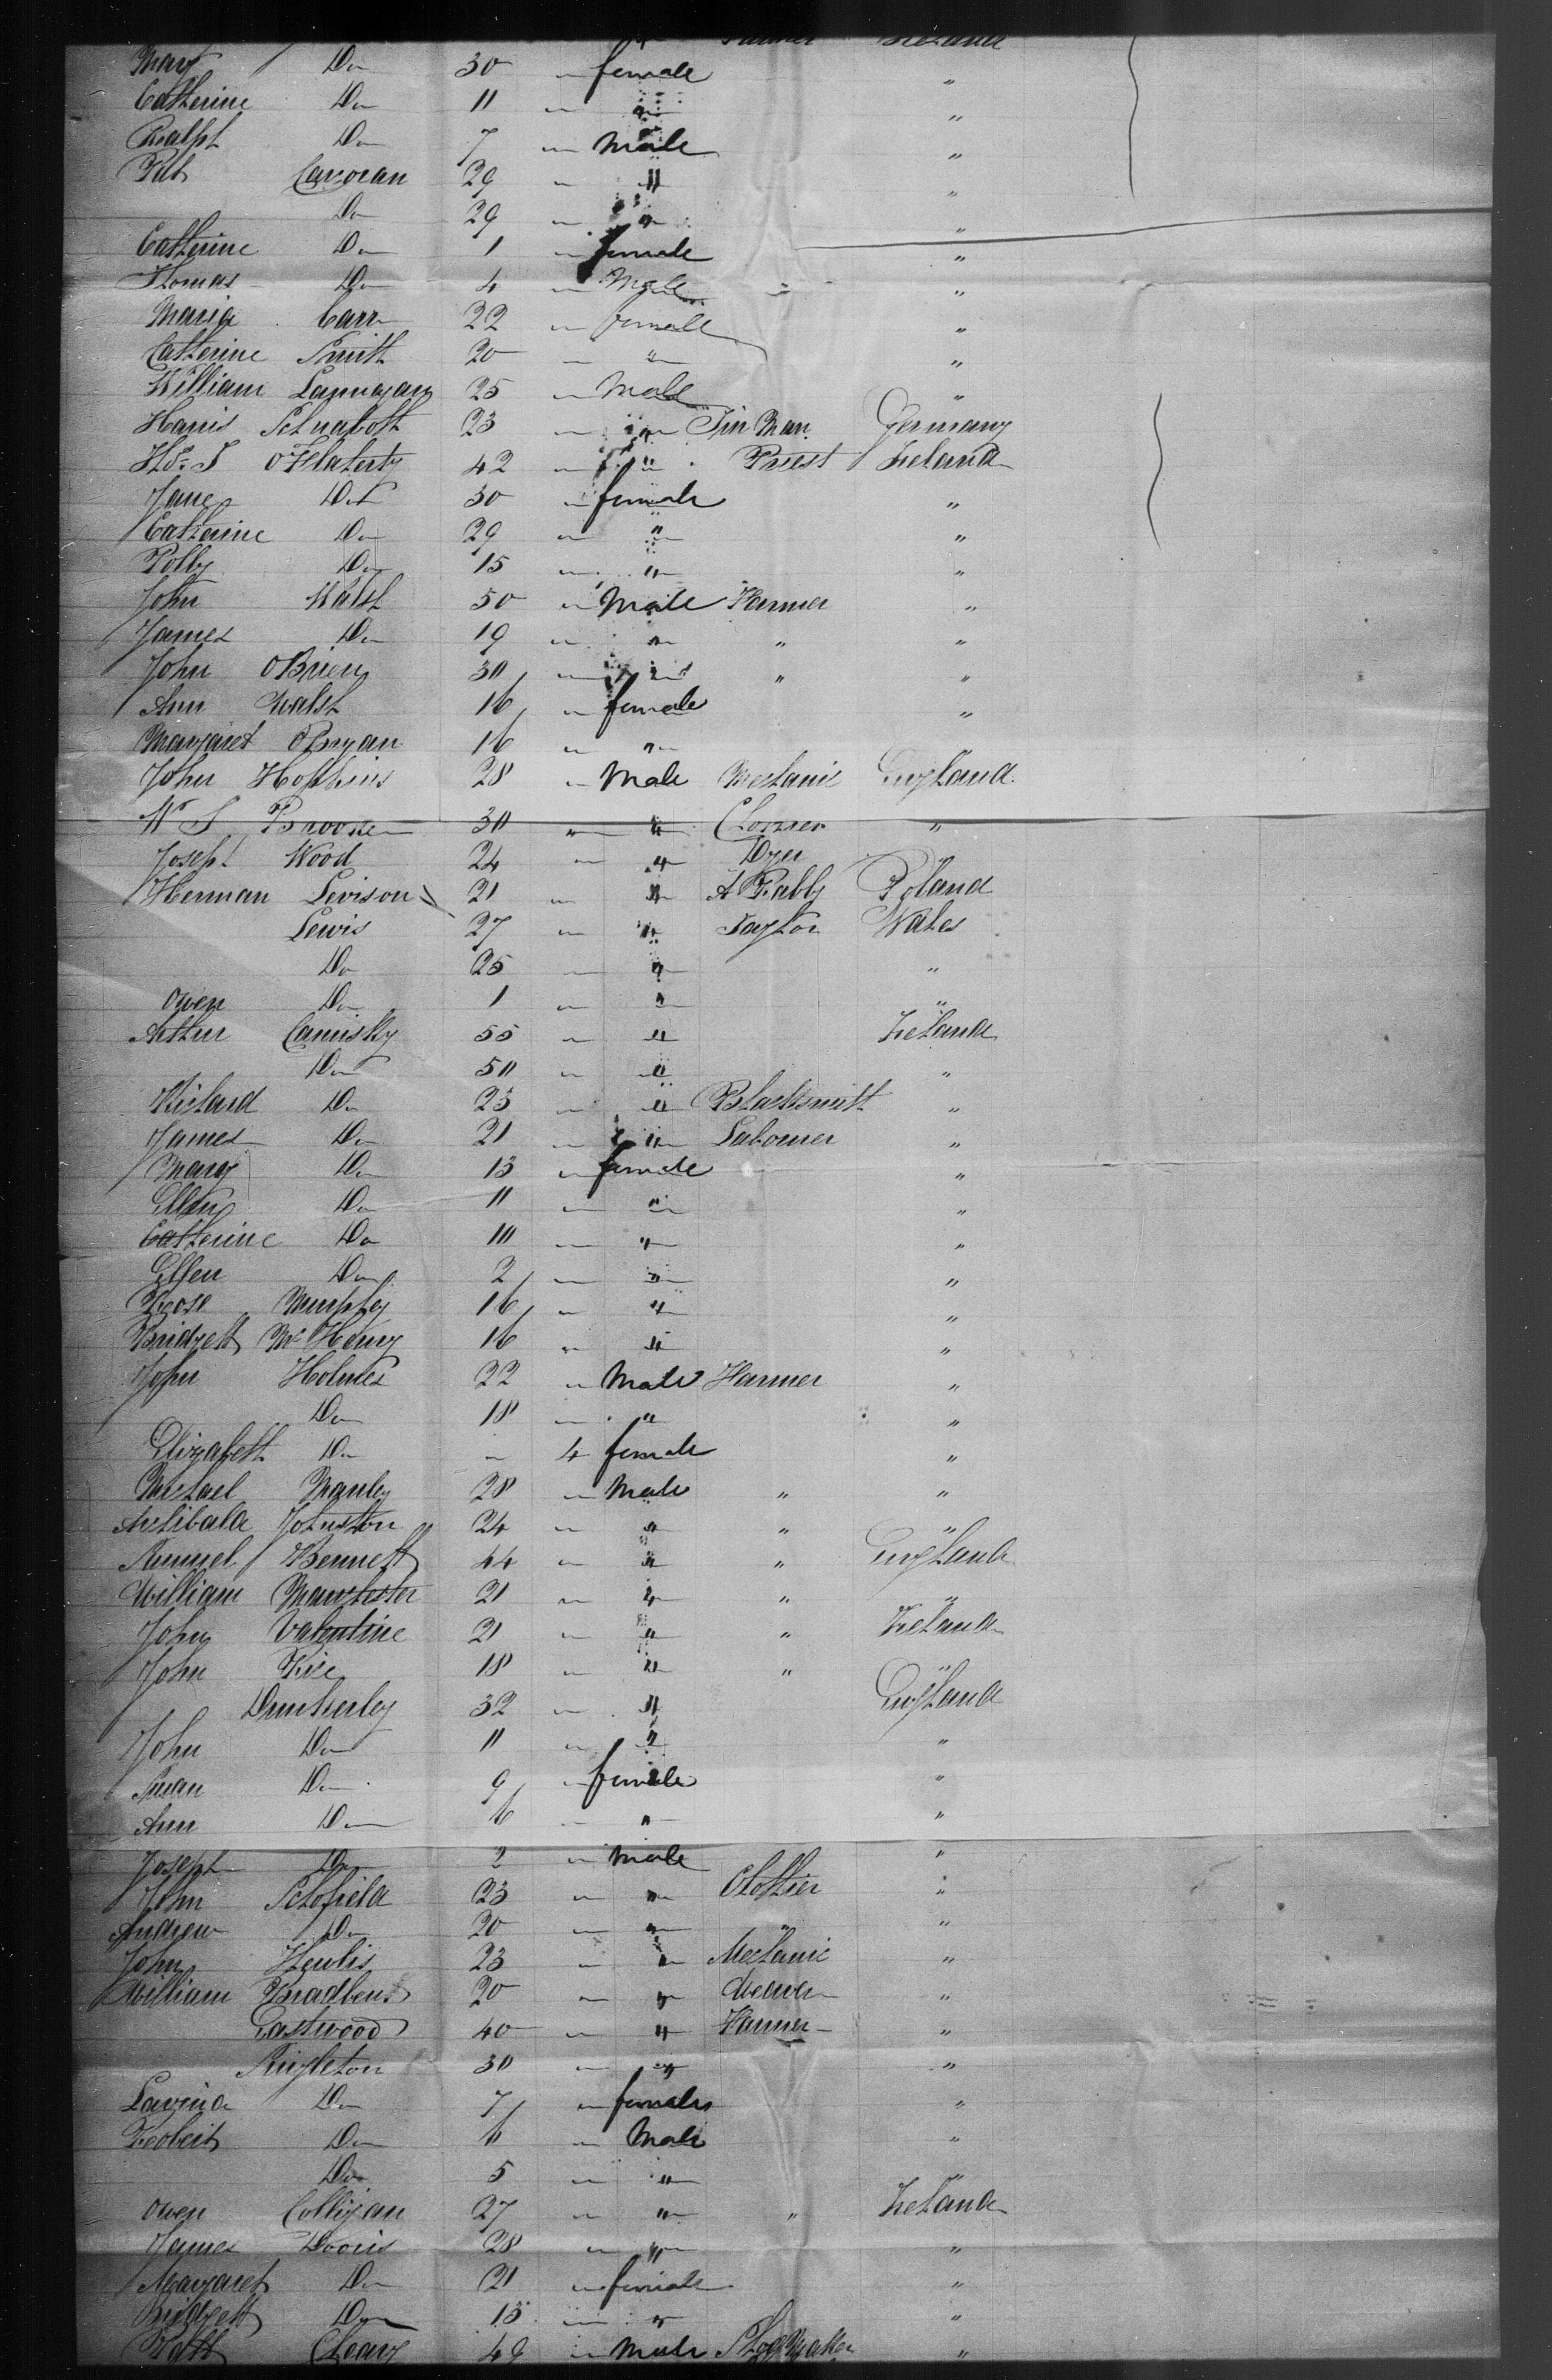 Mary Do 30 " female "
Catherine Do 11 " " "
Ralph Do 7 " Male "
Pat Cavoran 29 " " "
Do 29 " " "
Catherine Do 1 " female "
Thomas Do 4 " Male "
Maria Carr 22 " female "
Catherine Smith 20 " " "
William Lannagan 25 " Male "
Harris 23 " " Tin Man Germany
O'Flaherty 42 " " Priest Ireland
Jane Do 30 " female "
Catherine Do 29 " " "
Polly Do 15 " " "
John Walsh 50 " Male Farmer "
James Do 19 " " " "
John OBrien 30 " " " "
Ann Walsh 16 " female "
Margaret OBryan 16 " " "
John Hopkins 28 " Male Mechanic England
W S Brooke 30 " " "
Joseph Wood 24 " " Dyer
Herman Levison 21 " " A Rabby Poland
Lewis 27 " " Taylor Wales
Do 25 " " "
Owen Do 1 " " "
Arthur Camisky 55 " " Ireland
Do 50 " " "
Richard Do 23 " " Blacksmith "
James Do 21 " " Labourer "
Mary Do 13 " female "
Ellen Do 11 " " "
Catherine Do 10 " " "
Ellen Do 2 " " "
Rose Murphy 16 " " "
Bridgett McHenry 16 " " "
John Holmes 22 " Male Farmer "
Do 18 " " "
Elizabeth Do " 4 female "
Michael Manley 28 " Male " "
Archibald Johnston 24 " " " "
Samuel Bennett 44 " " " England
William Manchester 21 " " " "
John Valentine 21 " " " Ireland
John Rice 18 " " " "
Dunkerley 32 " " England
John Do 11 " " "
Susan Do 9 " female "
Ann Do 6 " " "
Joseph Do 2 " Male "
John Schofield 23 " " Clothier "
Andrew Do 20 " " " "
John 23 " " Mechanic "
William Bradbent 20 " " Weaver "
Eastwood 40 " " Farmer "
Singleton 30 " " "
Lavinia Do 7 " female "
Robert Do 6 " Male "
Do 5 " " "
Owen Colligan 27 " " " Ireland
James Dooris 28 " " "
Margaret Do 21 " female "
Bridgett Do 13 " " "
Patt Cleary 49 " Male Shoe Maker "